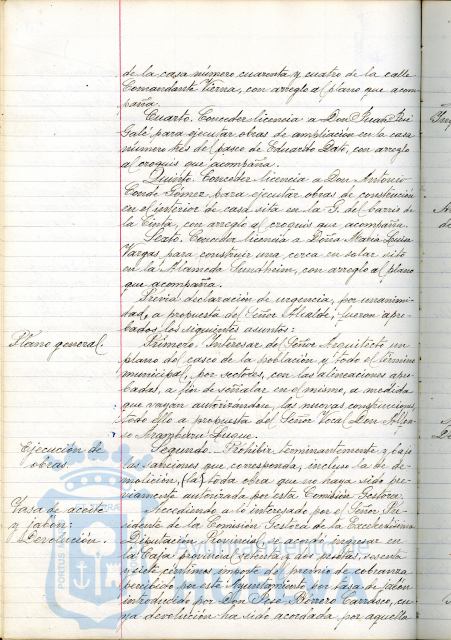 de la casa número cuarenta y cuatro de la calle
Comandante Vierna, con arreglo al plano que acom-
paña.
Cuarto. Conceder licencia a Don Juan José
Galé, para ejecutar obras de ampliación en la casa
número tres del paseo de Eduardo Dato, con arreglo
al croquis que acompaña.
Quinto. Conceder licencia a Don Antonio
Conde Gómez para ejecutar obras de
en el interior de casa sita en la del barrio de
la Cinta, con arreglo al croquis que acompaña.
Sexto. Conceder licencia a Doña María Luisa
Vargas para construir una cerca en solar sito
en la Alameda Sundheim, con arreglo al plano
que acompaña.
Previa declaración de urgencia, por unanimi-
dad, a propuesta del Señor Alcalde, fueron apro-
bados los siguientes asuntos:
Plano general.
Primero. Interesar del Señor Arquitecto un
plano del casco de la población y todo el término
municipal, por sectores, con las alineaciones apro-
badas, a fin de señalar en el mismo, a medida
que vayan autorizándose, las nuevas construcciones,
todo ello a propuesta del Señor Vocal Don
Aramburu Luque.
Ejecución de
obras.
Segundo. Prohibir terminantemente y bajo
las sanciones que corresponda, incluso la de de-
molición, (la) toda obra que no haya sido pre-
viamente autorizada por esta Comisión Gestora.
Tasa de aceite
y jabón:
Devolución.
Accediendo a lo interesado por el Señor Pre-
sidente de la Comisión Gestora de la Excelentísima
Diputación Provincial, se acordó ingresar en
la Caja provincial setenta y dos pesetas, sesenta
y siete céntimos, importe del premio de cobranza
percibido por este Ayuntamiento por tasa de jabón
introducido por Don José Borrero Carrasco, cu-
ya devolución ha sido acordada por aquella
PORTUS